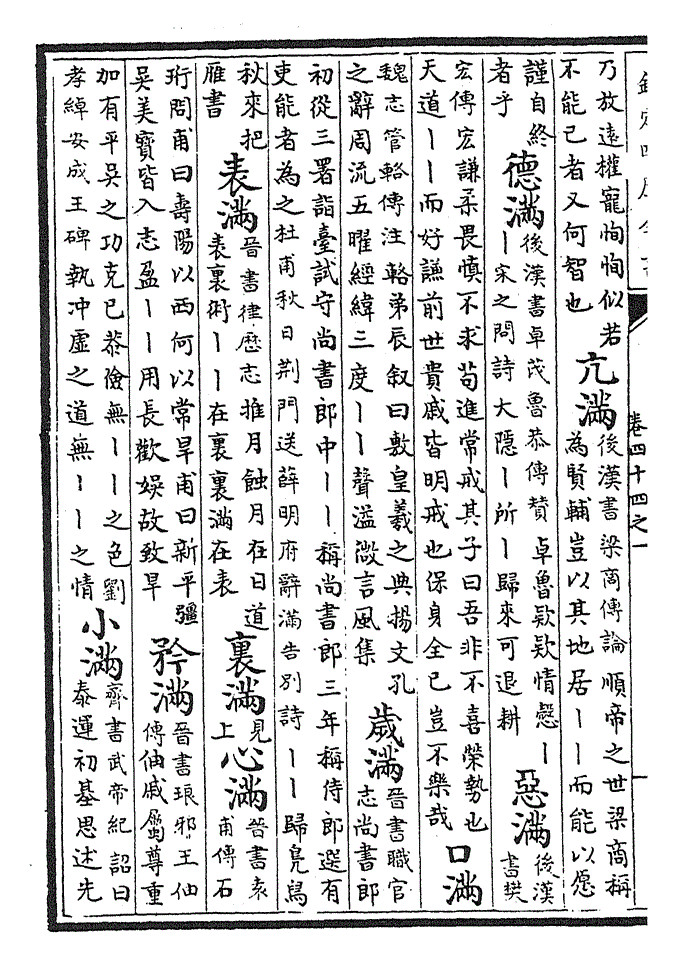 欽定四庫全書
卷四十四之一
乃放遠權寵恂恂似若
不能已者又何智也
亢滿
後漢書梁商傳論順帝之世梁商稱
為賢輔豈以其地居丨丨而能以愿
謹自終
者乎
德滿
後漢書卓茂魯恭傳贊卓魯欵欵情慤丨
丨宋之問詩大隱丨所丨歸來可退耕
惡滿
後漢
書樊
宏傳宏謙柔畏慎不求苟進常戒其子曰吾非不喜榮勢也
天道丨丨而好謙前世貴戚皆明戒也保身全已豈不樂哉
口滿
魏志管輅傳注輅弟辰叙曰敷皇羲之典揚文孔
之辭周流五曜經緯三度丨丨聲溢微言風集
歲滿
晉書職官
志尚書郎
初從三署詣臺試守尚書郎中丨丨稱尚書郎三年稱侍郎選有
吏能者為之杜甫秋日荆門送薛明府辭滿告别詩丨丨歸鳧舄
秋來把
雁書
表滿
晉書律歷志推月蝕月在日道
表裏術丨丨在裏裏滿在表
裏滿
見
上
心滿
晉書袁
甫傳石
珩問甫曰壽陽以西何以常旱甫曰新平疆
吳美寶皆入志盈丨丨用長歡娛故致旱
矜滿
晉書琅邪王伷
傳伷戚屬尊重
加有平吳之功克已恭儉無丨丨之色劉
孝綽安成王碑執冲虛之道無丨丨之情
小滿
齊書武帝紀詔曰
泰運初基思述先